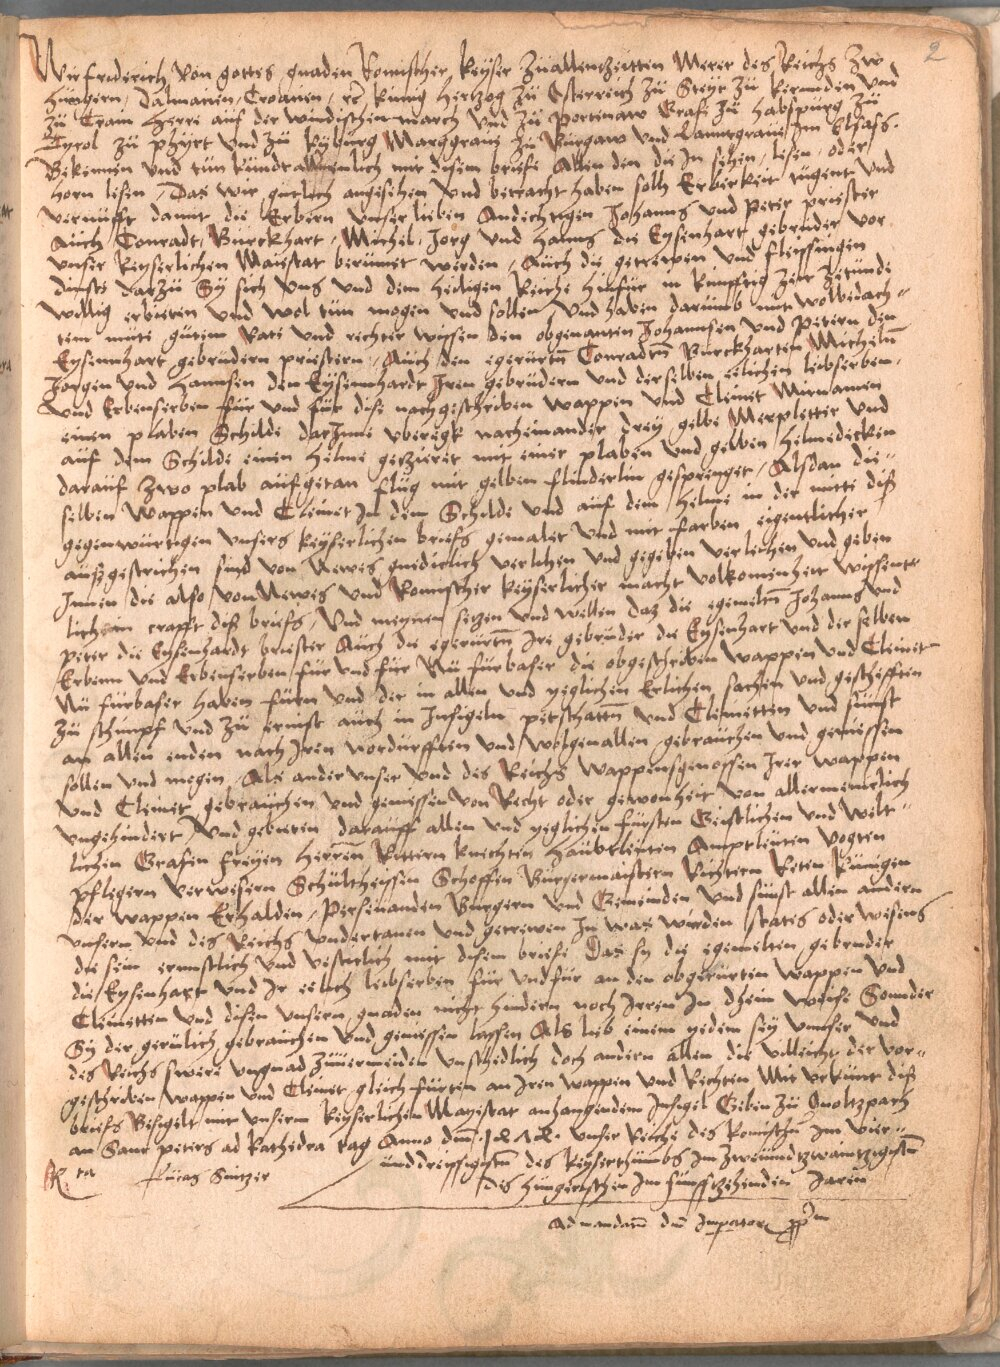 2
Wir friderich von gottes gnaden Romischer Keyser Zuallenzeitten Merer des Reichs Zw
Hungern, Dalmatien, Croatien, rc Kunig Hertzog Zu Osterreich Zu Steyr Zu Kernnden und
Zu Crain Herre auf der windischen march und Zu Portenaw Graf Zu Habspurg Zu
Tyrol Zu phyrt und Zu Kyburg Marggrave Zu Burgaw und Lanntgrave Im Elsass.
Bekennen und tun kundt allermenlich mit disem briefe Allen den die In sehen, lesen, oder
horn lesen, Das wir gutlich angesehen und betracht haben solh Erberkeit tugent und
vernufft damit die Erbern unser lieben Andechtigen Johanns und Peter priester
Auch Conradt, Burckhart, Michel, Jorg und Hanns die Eysenhart gebruder vor
unser Keyserlichen Maiestat berumet werden, Auch die getrewen und fleyssigen
dinste dartzu Sy sich uns und dem heiligen Reiche hinfur in kunfftig Zeit Zetunde
willig erbieten und wol tun mogen und sollen, Und haben darumb mit wolbedach-
tem mute gutem Rate und rechter wissen den obgenanten Johannsen und Petern den
Eysennhart gebrudern priestern, Auch den egerurten Conradten Burckharten Micheln
Jorgen und Hannsen den Eysennhardt Iren gebrudern und derselben elichen leibserben,
und Erbenserben fur und fur dise nachgeschriben wappen und Cleinet Mitnamen
einen plaben Schilde darInne uberegk nacheinander drey gelbe Merpletter und
auf dem Schilde einen Helme getzieret mit einer plaben und gelben Helmedecken
darauf Zwo plab aufgetan flug mit gelben flinderlin gesprenget, Alsdan die-
selben Wappen und Cleinet In dem Schilde und auf dem Helme in der mitte diß
gegenwurtigen unsers Keyserlichen briefs gemalet und mit farben eigentlicher
außgestrichen sind von Newes gnediclich verlihen und gegeben verleihen und geben
Innen die also von Newes und Romischer Keyserlicher macht volkomenheit wissent-
lich in crafft diß briefs, Und meynen setzen und wellen daz die egemelten Johanns und
Peter die Eysenhardt briester Auch die egerurten Ire gebruder die Eysenhart und der selben
Erbenn und Erbenserben fur und fur Nu furbaser die obgeschriben wappen und Cleinet
Nu furbaser haben furn und der in allen und yeglichen Erlichen sachen und geschefften
Zu schimpf und Zu ernnst auch in Insigeln petschatten und Cleinetten und sunst
an allen enden nach Iren nordurfften und wolgevallen gebrauchen und geniessen
sollen und mogen, Als ander unser und des Reichs Wappensgenossen Irer wappen
und Cleinet gebrauchen und geniessen von Recht oder gewonheit von allermenclich
ungehindert, Und gebieten darauff allen und yeglichen fursten Geistlichen und Welt-
lichen Grafen freyen Herren Rittern knechten Haubtleuten Amptleuten Vogten
Pflegern Verwesern Schultheissen Schoffen Burgermaistern Richtern Reten Kunigen
der Wappen Erhalden, Persevanden Burgern und Gemeinden und sunst allen andern
unsern und des Reichs undertanen und getrewen In was wirden states oder wesens
die sein ernnstlich und vesticlich mit disem briefe Das sy die egemelten gebruder
die Eysenhart und Ir elich leibserben fur und fur an den obgerurten wappen und
Cleinetten und disen unsern gnaden nicht hindern noch Irren In dhein weise Sonnder
Sy der geruelich gebrauchen und geniessen lassen Als lieb einem yedem sey unser und
des Reichs swere ungnad Zuvermeiden Unschedlich doch andern allen die villeicht der vor-
geschriben wappen und Cleinet gleich furten an Iren wappen und Rechten Mit urkunt diß
briefs Besigelt mit unserm Keyserlichen Mayestat anhangendem Insigel Geben Zu
an Sanc peters ad kathedra tag Anno dni unser Reiche des Romischen Im vier-
unddreissigisten des Keyserthumbs Im Zweiundtzwaintzigisten
des Hungerischen Im funfftzehenden Jaren
Rta Lucas Snitzer
Ad mandatum dni Imperatoris